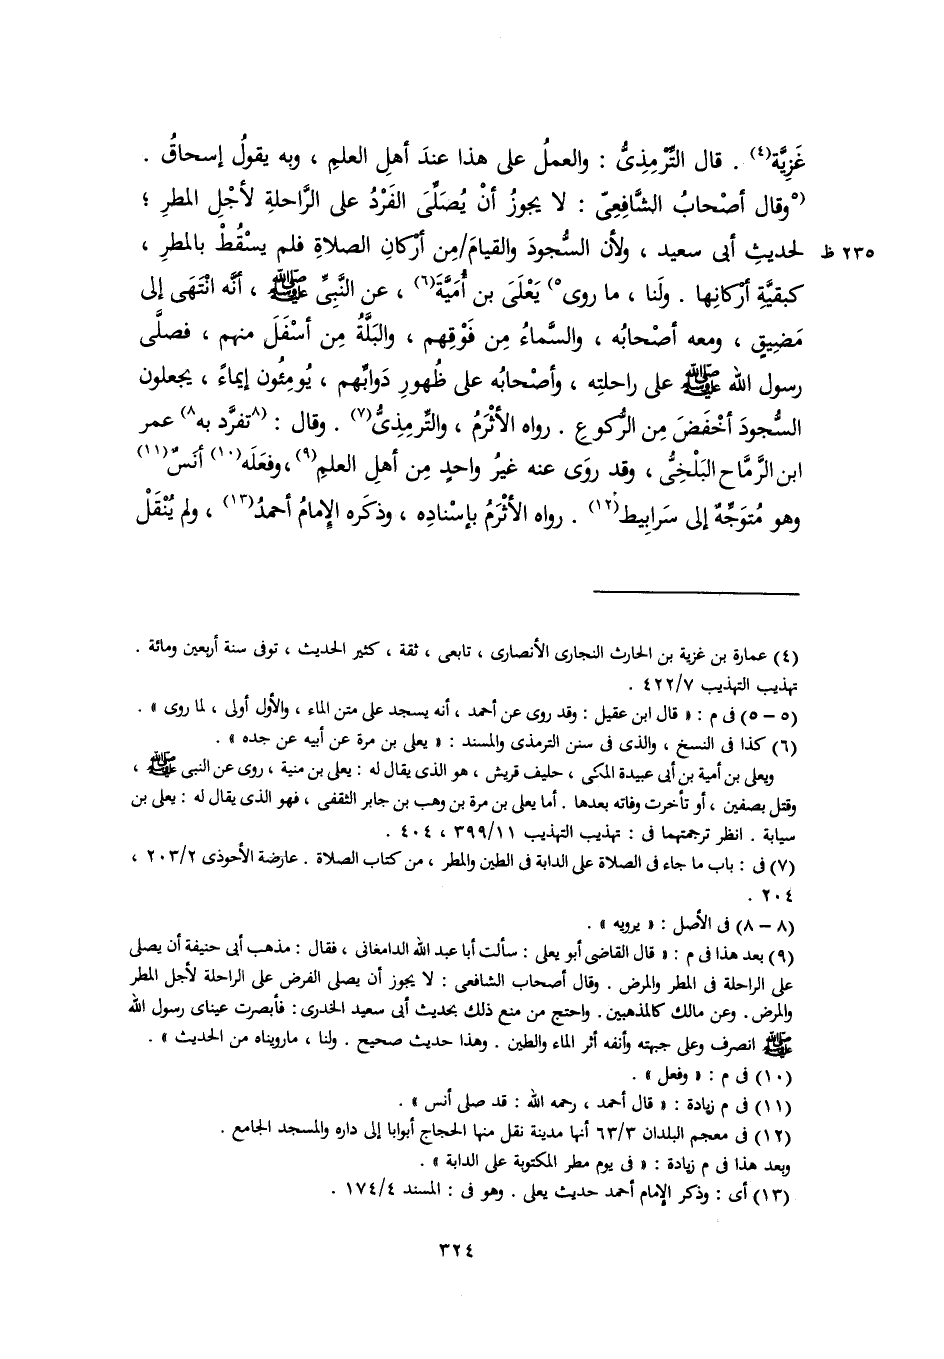 غَزِيَّة(٤) . قال التِّرْمِذِىُّ : والعملُ على هذا عندَ أهلِ العلمِ ، وبه يقولُ إسحاقُ .
(٥وقال أصْحابُ الشَّافِعِىّ : لا يجوزُ أنْ يُصَلِّىَ الفَرْدُ على الرَّاحلةِ لأجْلِ المطرِ ؛
لحديثِ أبى سعيد ، ولأن السُّجودَ والقيامَ/مِن أرْكانِ الصلاةِ فلم يسْقُطْ بالمطرِ ، ٢٣٥ ظ
كبقيَّةِ أرْكانِها . ولَنا ، ما روى٥) يَعْلَى بن أُمَيَّةَ(٦) ، عن النَّبِىِّ ﷺ ، أنَّه انْتَهَى إلى
مَضِيقٍ ، ومعه أصْحابُه ، والسَّماءُ مِن فَوْقِهم ، والبَلَّةُ مِن أسْفَلَ منهم ، فصلَّى
رسول الله ﷺ على راحلتِه ، وأصْحابُه على ظُهورِ دَوابِّهم ، يُومِئُون إيماءً ، يجعلون
السُّجودَ أخْفَضَ مِن الرُّكوعِ . رواه الأثْرَمُ ، والتِّرمِذِىُّ(٧) . وقال : (٨تفرَّد به٨) عمر
ابن الرَّمَّاح البَلْخِىُّ ، وقد روَى عنه غيرُ واحدٍ مِن أهلِ العلمِ(٩) ،وفعَلَه(١٠) أنَسٌ(١١)
وهو مُتوَجِّهٌ إلى سَرابِيط(١٢) . رواه الأثْرَمُ بإسْنادِه ، وذكَره الإمامُ أحمدُ(١٣) ، ولم يُنْقَلْ
(٤) عمارة بن غزية بن الحارث النجارى الأنصارى ، تابعى ، ثقة ، كثير الحديث ، توفى سنة أربعين ومائة .
تهذيب التهذيب ٤٢٢/٧ .
(٥ – ٥) فى م : « قال ابن عقيل : وقد روى عن أحمد ، أنه يسجد على متن الماء ، والأول أولى ، لما روى » .
(٦) كذا فى النسخ ، والذى فى سنن الترمذى والمسند : « يعلى بن مرة عن أبيه عن جده » .
ويعلى بن أمية بن أبى عبيدة المكى ، حليف قريش ، هو الذى يقال له : يعلى بن منية ، روى عن النبى ﷺ ،
وقتل بصفين ، أو تأخرت وفاته بعدها . أما يعلى بن مرة بن وهب بن جابر الثقفى ، فهو الذى يقال له : يعلى بن
سيابة . انظر ترجمتهما فى : تهذيب التهذيب ٣٩٩/١١ ، ٤٠٤ .
(٧) فى : باب ما جاء فى الصلاة على الدابة فى الطين والمطر ، من كتاب الصلاة . عارضة الأحوذى ٢٠٣/٢ ،
٢٠٤ .
(٨ – ٨) فى الأصل : « يرويه » .
(٩) بعد هذا فى م : « قال القاضى أبو يعلى : سألت أبا عبد الله الدامغانى ، فقال : مذهب أبى حنيفة أن يصلى
على الراحلة فى المطر والمرض . وقال أصحاب الشافعى : لا يجوز أن يصلى الفرض على الراحلة لأجل المطر
والمرض . وعن مالك كالمذهبين . واحتج من منع ذلك بحديث أبى سعيد الخدرى : فأبصرت عيناى رسول الله
ﷺ انصرف وعلى جبهته وأنفه أثر الماء والطين . وهذا حديث صحيح . ولنا ، مارويناه من الحديث » .
(١٠) فى م : « وفعل » .
(١١) فى م زيادة : « قال أحمد ، رحمه الله : قد صلى أنس » .
(١٢) فى معجم البلدان ٦٣/٣ أنها مدينة نقل منها الحجاج أبوابا إلى داره والمسجد الجامع .
وبعد هذا فى م زيادة : « فى يوم مطر المكتوبة على الدابة » .
(١٣) أى : وذكر الإمام أحمد حديث يعلى . وهو فى : المسند ١٧٤/٤ .
٣٢٤